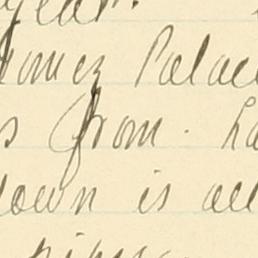 year.
Gomez Palac
s from. La
down is all